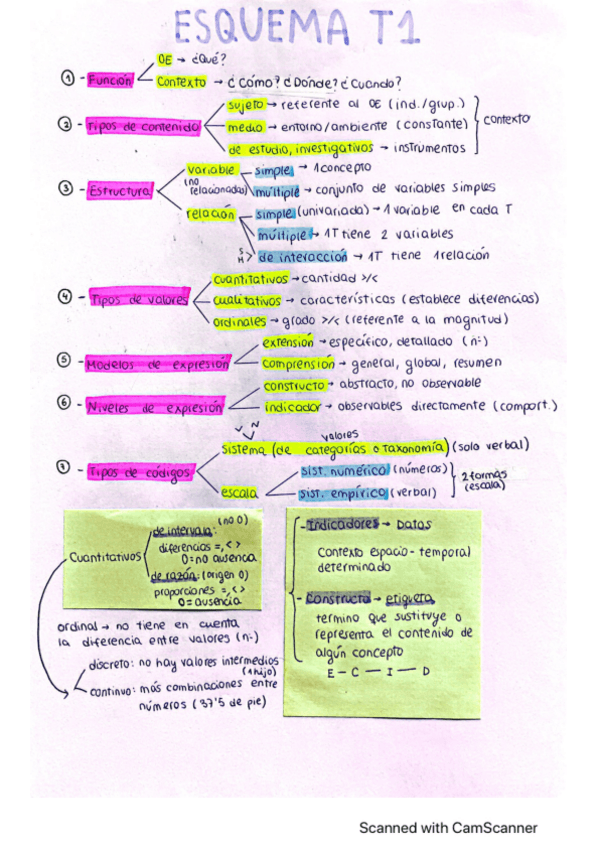 ESQUEMA T1
OE → ¿Qué?
① - Función
Contexto → ¿Cómo? ¿Dónde? ¿Cuando?
sujeto → referente al OE (ind./grup.)
② - Tipos de contenido
medio → entorno/ambiente (constante)
contexto
de estudio, investigativos → instrumentos
variable
simple → 1 concepto
(no relacionadas)
múltiple → conjunto de variables simples
③ - Estructura
relación
simple (univariada) → 1 variable en cada T
múltiple → 1T tiene 2 variables
S
M >
de interacción → 1T tiene 1 relación
cuantitativos → cantidad >/<
④ - Tipos de valores
cualitativos → características (establece diferencias)
ordinales → grado >/< (referente a la magnitud)
extensión → específico, detallado (nº)
⑤ - Modelos de expresión
comprensión → general, global, resumen
constructo → abstracto, no observable
⑥ - Niveles de expresión
indicador → observables directamente (comport.)
V N
valores
sistema (de categorías o taxonomía) (solo verbal)
⑦ - Tipos de códigos
sist. numérico (números)
escala
2 formas
(escala)
sist. empírico (verbal)
Cuantitativos
de intervalo: (no 0)
diferencias =, < >
0 = no ausenca
de razón: (origen 0)
proporciones =, < >
0 = ausencia
ordinal → no tiene en cuenta
la diferencia entre valores (nº)
discreto: no hay valores intermedios
(1 hijo)
continuo: más combinaciones entre
números (37'5 de pie)
- Indicadores → Datos
Contexto espacio-temporal
determinado
- Constructo → etiqueta,
termino que sustituye o
representa el contenido de
algún concepto
E — C — I — D
Scanned with CamScanner